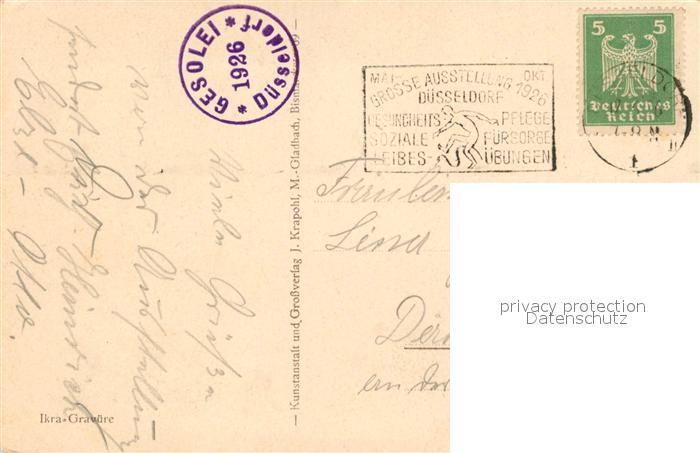 GESOLEI * 1926 * Düsseldorf
MAI OKT
GROSSE AUSSTELLUNG 1926
DÜSSELDORF
GESUNDHEITS PFLEGE
SOZIALE FÜRSORGE
LEIBES- ÜBUNGEN
5 5
Deutsches
Reich
1
Viele Grüße
von der Ausstellung
sendet
Heinrich
Otto.
Fräulein
an der
— Kunstanstalt und Großverlag J. Krapohl, M.-Gladbach,
Ikra-Gravüre
privacy protection
Datenschutz